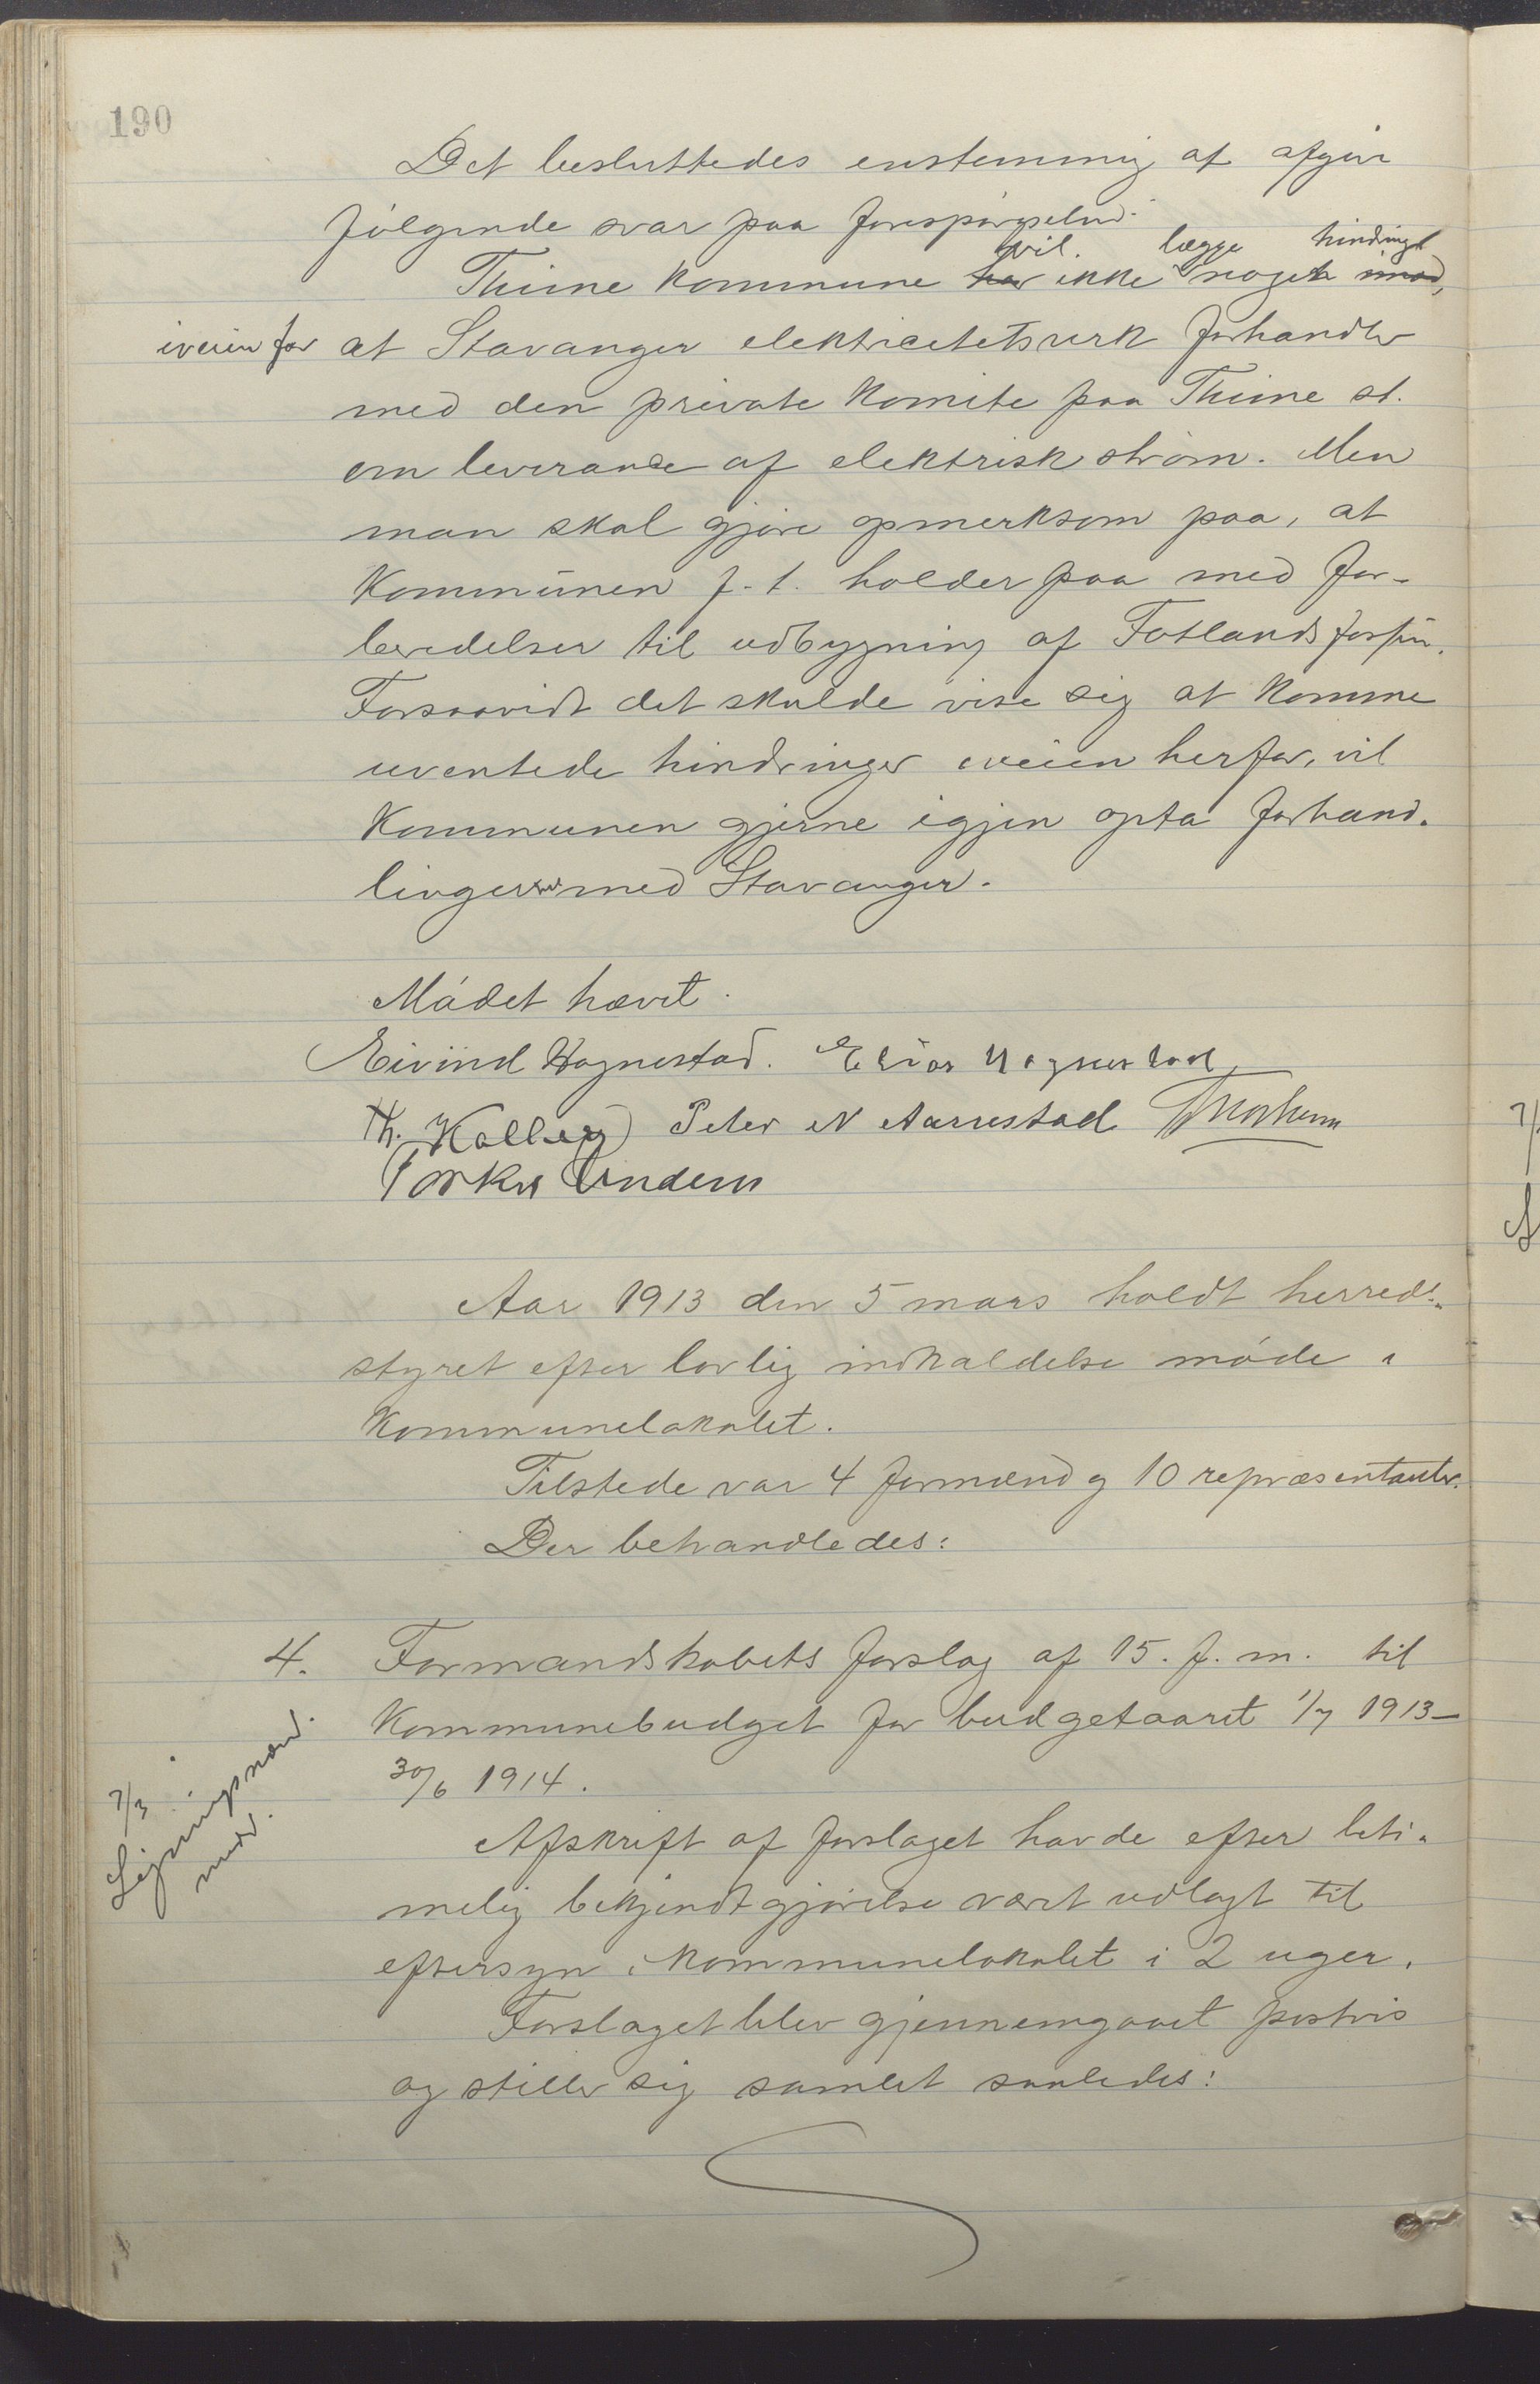 190
Det besluttedes enstemmig at afgive
følgende svar paa forespørgselen:
vil lægge hindringer
Thime kommune har ikke noget imod,
iveien for at Stavanger elektricitetsverk forhandler
med den private komite paa Thime st.
om leverance af elektrisk strøm. Men
man skal gjøre opmerksom paa, at
kommunen f. t. holder paa med for-
beredelser til udbygning af Fotlandsfossen.
Forsaavidt det skulde vise sig at komme
uventede hindringer iveien herfor, vil
kommunen gjerne igjen opta forhand-
linger med Stavanger.
Mødet hævet.
Eivind Hognestad. Elias Hognestad
Th. Kalberg Peter N Aarrestad
Undem
Aar 1913 den 5 mars holdt herreds-
styret efter lovlig indkaldelse møde i
kommunelokalet.
Tilstede var 4 formænd og 10 repræsentanter.
Der behandledes:
4. Formandskabets forslag af 15. f. m. til
kommunebudget for budgetaaret 1/7 1913-
30/6 1914.
7/3
Ligningsnævd.
medd.
Afskrift af forslaget havde efter beti-
melig bekjendtgjørelse været udlagt til
eftersyn i kommunelokalet i 2 uger.
Forslaget blev gjennemgaaet postvis
og stiller sig samlet saaledes: